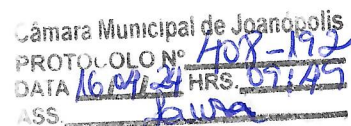 Câmara Municipal de Joanópolis
PROTOCOLO Nº 408-192
DATA 16/04/24 HRS. 09:49
ASS. Laura